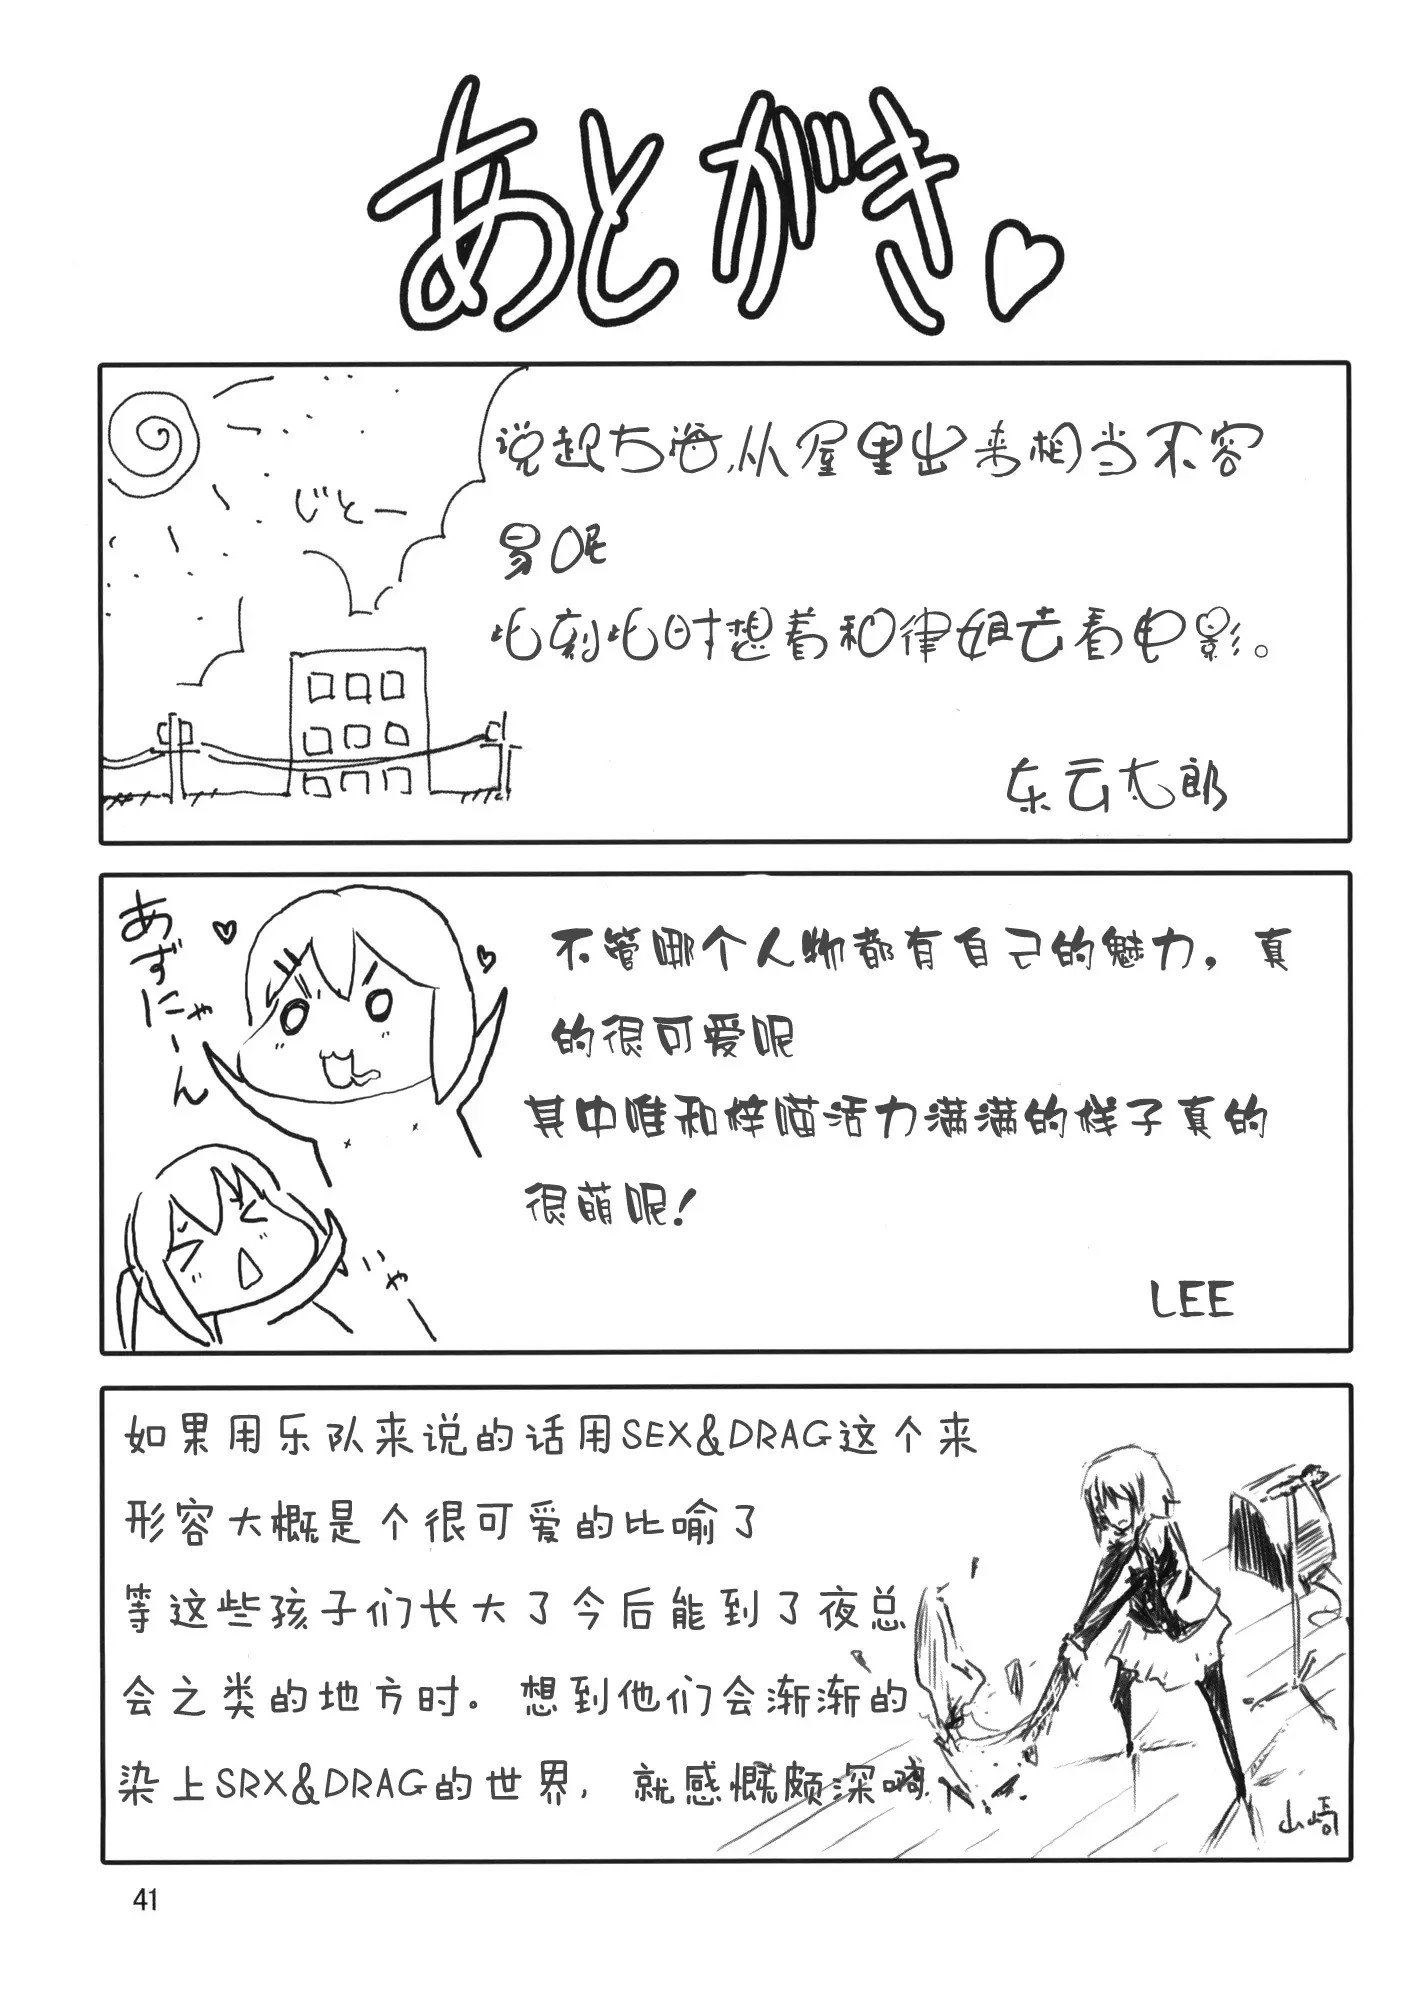 あとがき
じとー
说起大海,从屋里出来相当不容
易呢
此刻此时想着和律姐去看电影。
东云太郎
あずにゃーん
不管哪个人物都有自己的魅力，真
的很可爱呢
其中唯和梓喵活力满满的样子真的
很萌呢!
いやー
LEE
如果用乐队来说的话用SEX&DRAG这个来
形容大概是个很可爱的比喻了
等这些孩子们长大了今后能到了夜总
会之类的地方时。想到他们会渐渐的
染上SRX&DRAG的世界,就感慨颇深啊.
山崎
41